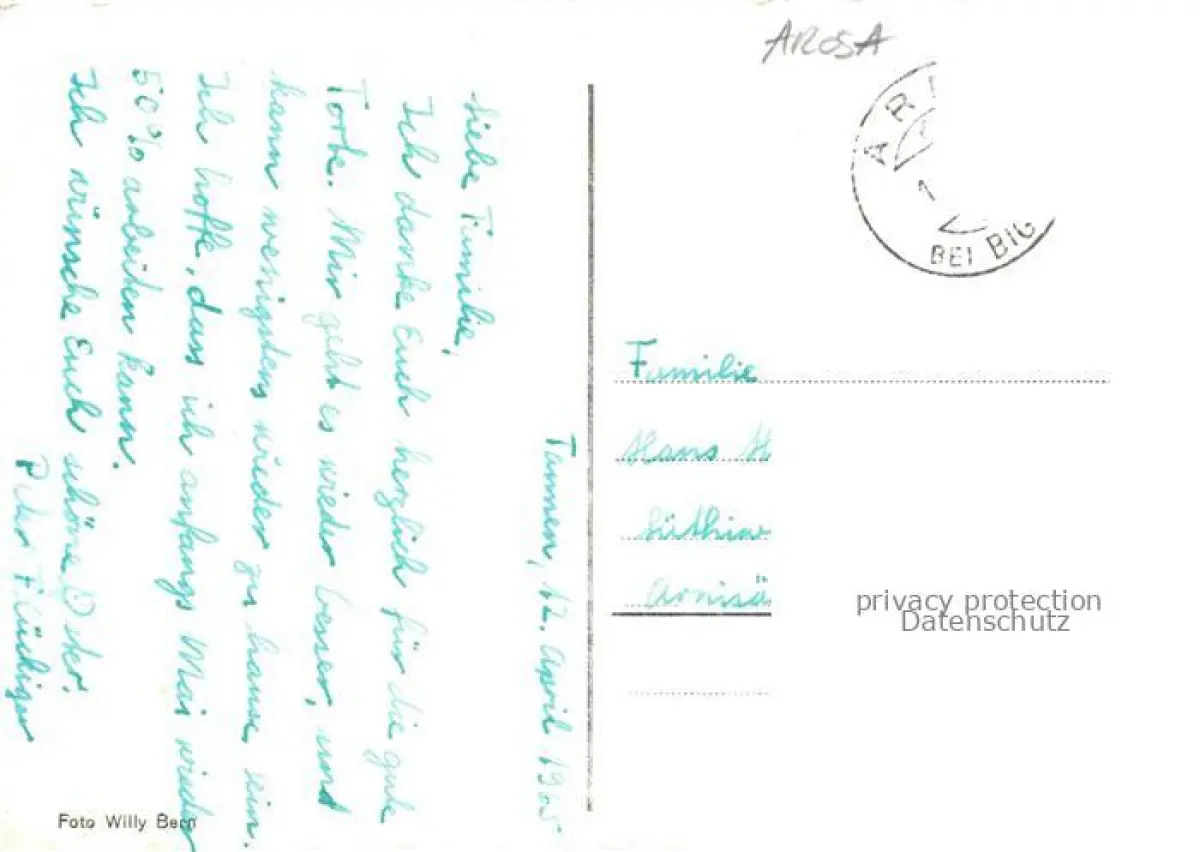 AROSA
BEI BIG
Tannen, 12. April 1965
Liebe Familie,
Ich danke Euch herzlich für die gute
Torte. Mir geht es wieder besser, und
kann wenigstens wieder zu hause sein.
Ich hoffe, dass ich anfangs Mai wieder
50% arbeiten kann.
Ich wünsche Euch schöne Oster.
Peter Flückiger
Familie
Hans H
Arnisä
privacy protection
Datenschutz
Foto Willy Bern